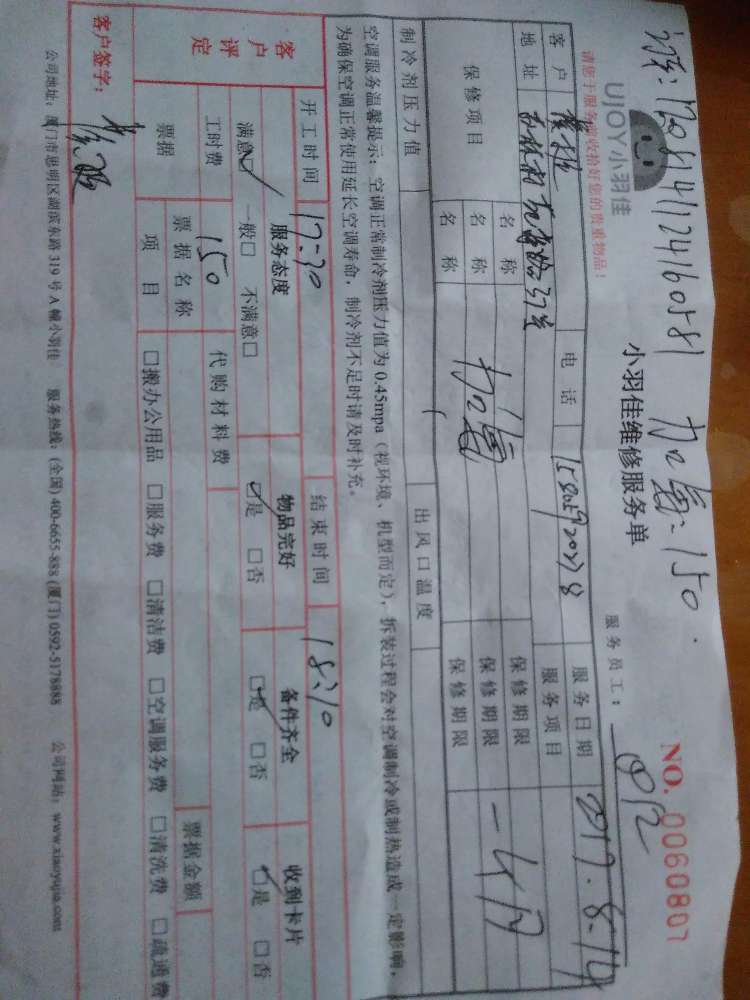 加氟:150.
UJOY小羽佳
小羽佳维修服务单
NO. 0060807
请您于服务前收拾好您的贵重物品!
服务员工:
客户
电话
服务日期 2017.8.14
地址
服务项目
保修项目
名称
保修期限
名称 加氟
保修期限 一个月
名称
保修期限
制冷剂压力值
出风口温度
空调服务温馨提示:空调正常制冷剂压力值为0.45mpa(视环境、机型而定),拆装过程会对空调制冷或制热造成一定影响,
为确保空调正常使用延长空调寿命,制冷剂不足时请及时补充。
开工时间 17:30 结束时间 18:10
客户评定
服务态度 物品完好 备件齐全 收到卡片
满意☑ 一般□ 不满意□ ☑是 □否 ☑是 □否 ☑是 □否
工时费 150 代购材料费
票据
票据名称
票据金额
项目 □搬办公用品 □服务费 □清洁费 □空调服务费 □清洗费 □疏通费
客户签字:
公司地址:厦门市思明区湖滨东路319号A幢小羽佳 服务热线:(全国)400-6655-888 (厦门)0592-5178888 公司网站:www.xiaoyujia.com